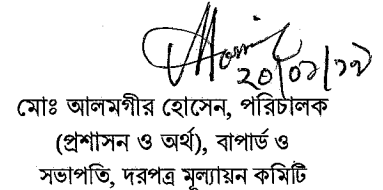 মোঃ আলমগীর হোসেন, পরিচালক
(প্রশাসন ও অর্থ), বাপার্ড ও
সভাপতি, দরপত্র মূল্যায়ন কমিটি